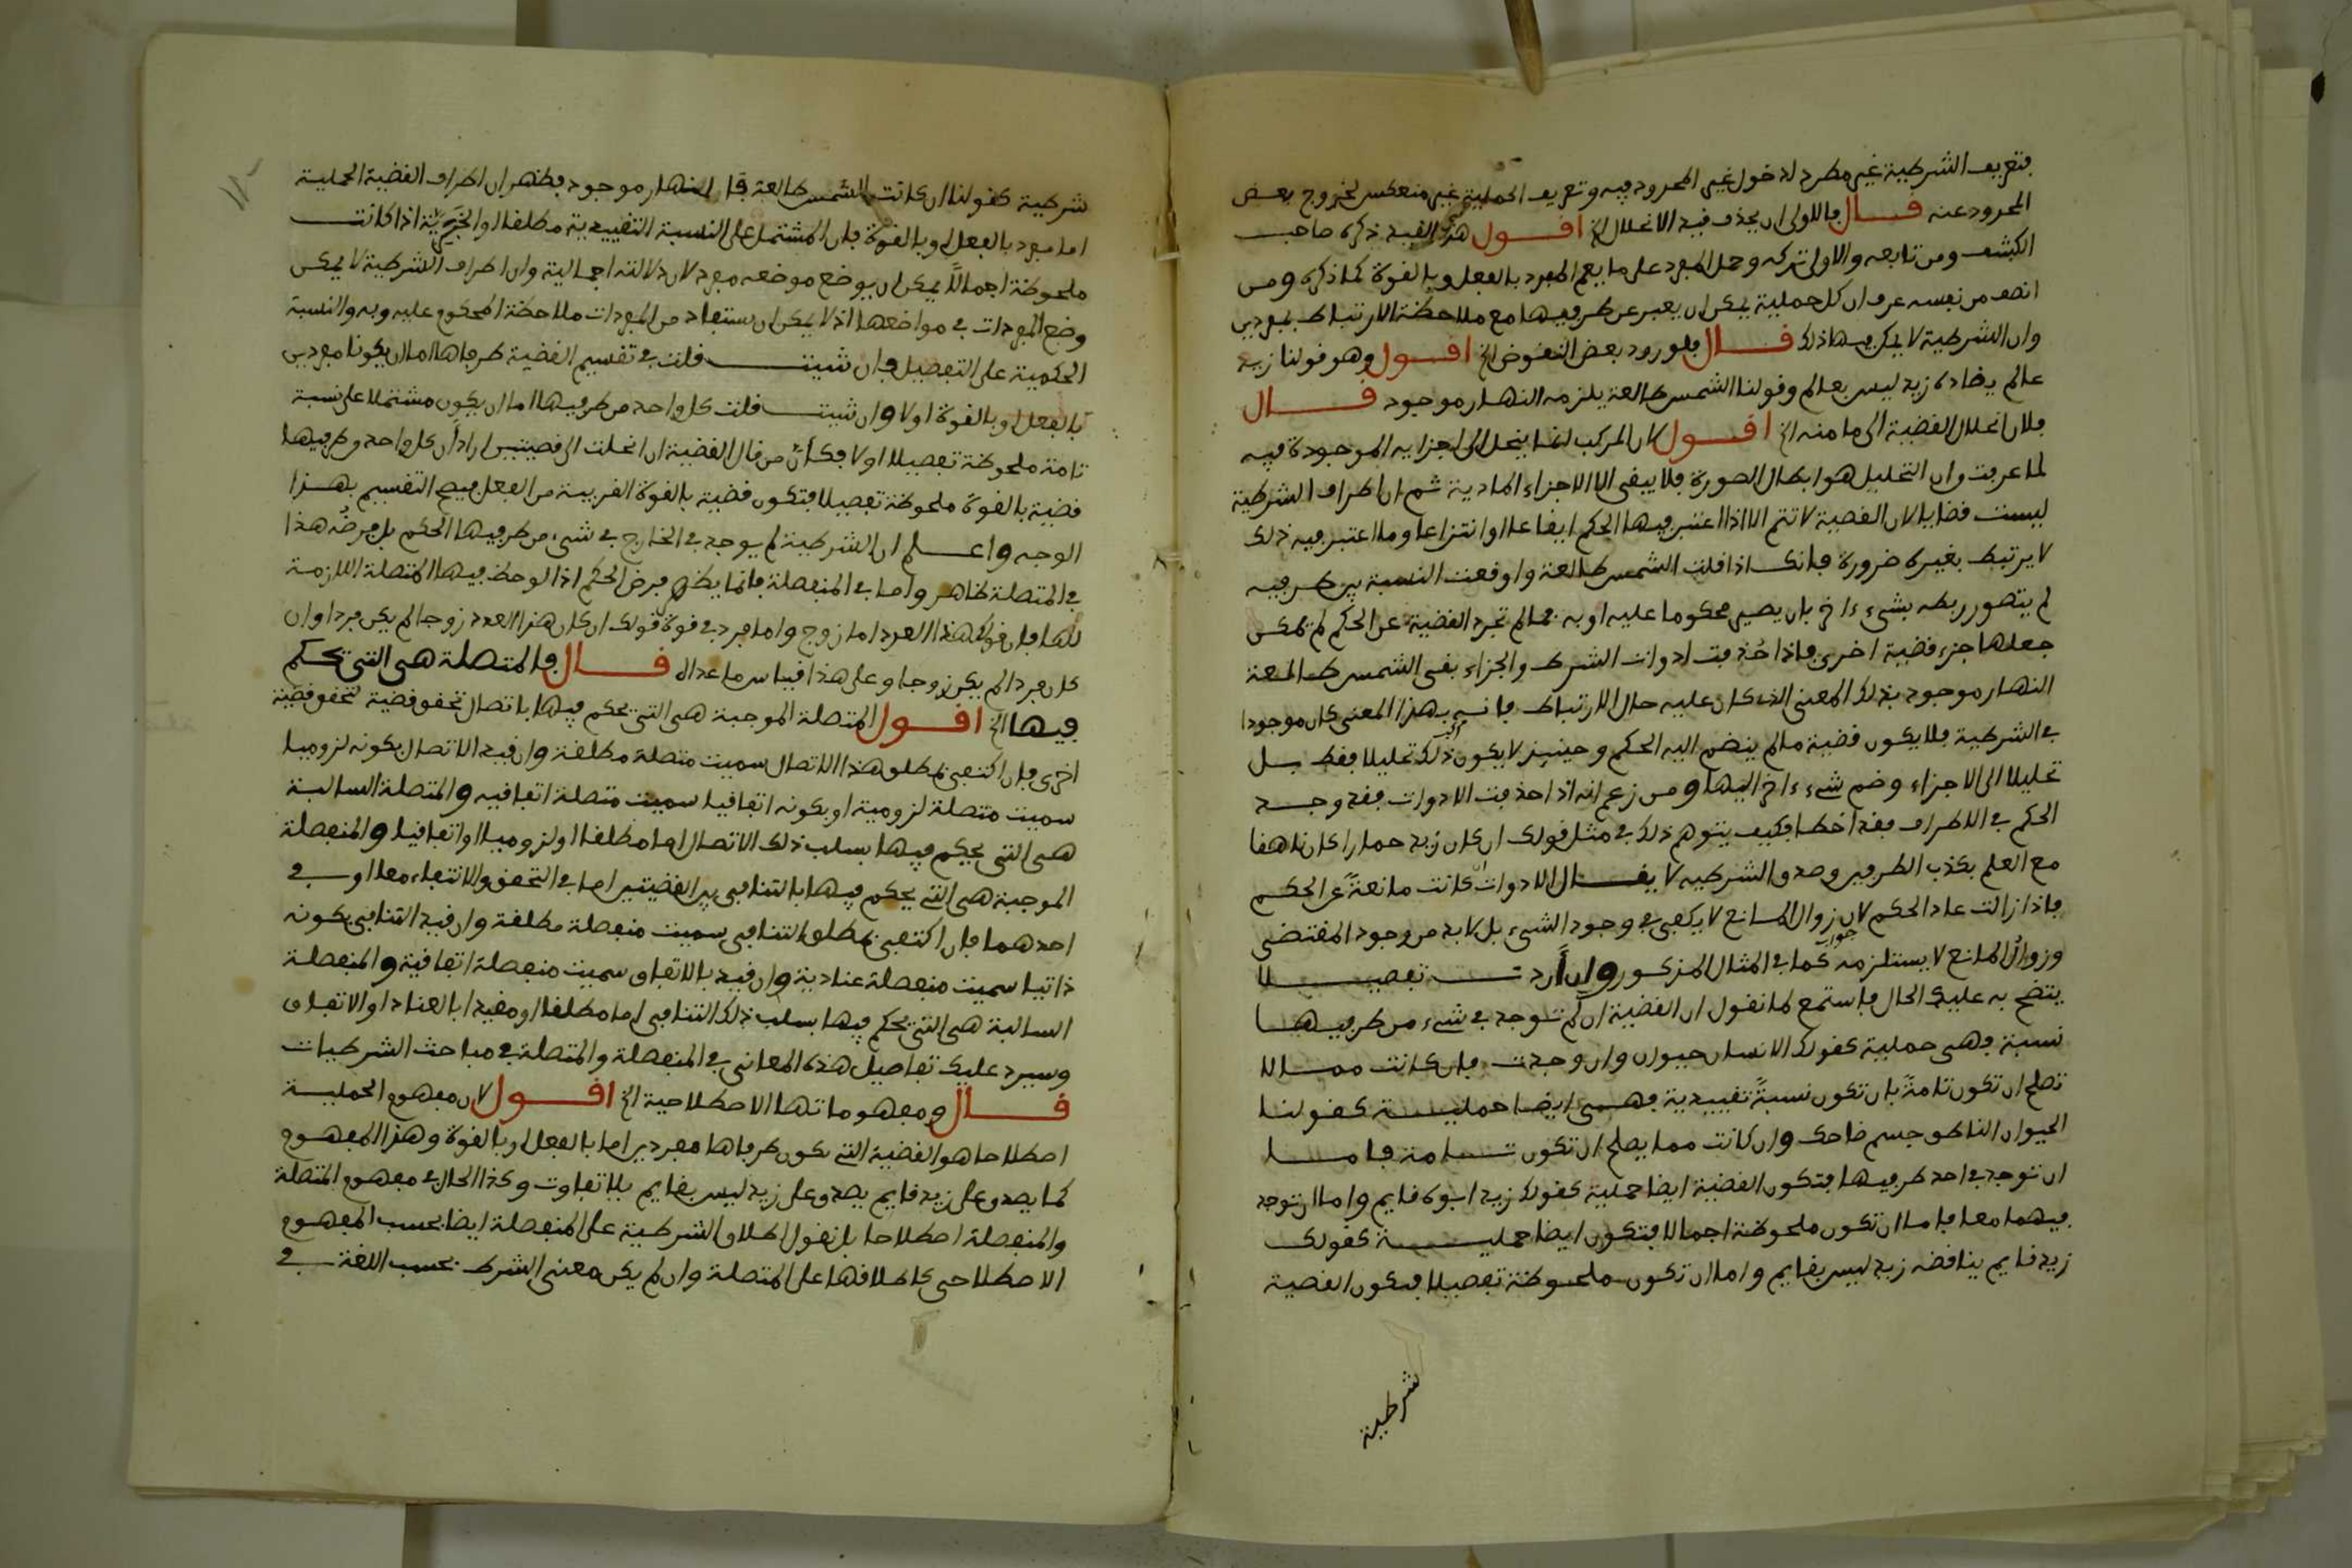 فتعريف الشرطية غير مطرد لدخول غير المحدود فيه وتعريف الحملية غير منعكس لخروج بعض
المحدود عنه قال فالاولى ان يحذف قيد الانحلال الخ اقول هذا القيد ذكره صاحب
الكشف ومن تابعه والاولى تركه وحمل المفرد على ما يعم المفرد بالفعل وبالقوة كما ذكره ومن
انصف من نفسه عرف ان كل حملية يمكن ان يعبر عن طرفيها مع ملاحظة الارتباط بمفردين
وان الشرطية لا يمكن فيها ذلك قال فلورود بعض النقوض الخ اقول وهو قولنا زيد
عالم يضاده زيد ليس بعالم وقولنا الشمس طالعة يلزمه النهار موجود قال
فلان انحلال القضية الى ما منه الخ اقول لان المركب انما ينحل الى اجزايه الموجودة فيه
لما عرفت وان التحليل هو ابطال الصورة فلا يبقى الا الاجزاء المادية ثم ان اطراف الشرطية
ليست قضايا لان القضية لا تتم الا اذا اعتبر فيها الحكم ايقاعا او انتزاعا وما اعتبر فيه ذلك
لا يرتبط بغيره ضرورة فانك اذا قلت الشمس طالعة واوقعت النسبة بين طرفيه
لم يتصور ربطه بشيء ءاخر بان يصير محكوما عليه او به فما لم تجرد القضية عن الحكم لم تمكن
جعلها جزء قضية اخرى فاذا حُذفت ادوات الشرط والجزاء بقى الشمس طالعة
النهار موجود بذلك المعنى الذي كان عليه حال الارتباط فانه بهذا المعنى كان موجودا
في الشرطية فلا يكون قضية ما لم ينضم اليه الحكم وحينئذ لا يكون ذلك تحليلا فقط بل
تحليلا الى الاجزاء وضم شيء ءاخر اليها ومن زعم انه اذا حذفت الادوات فقد وجد
الحكم في الاطراف فقد اخطا فكيف يتوهم ذلك في مثل قولك ان كان زيد حمارا كان ناهقا
مع العلم بكذب الطرفين وصدق الشرطيه لا يقال الادوات كانت مانعةً عن الحكم
فاذا زالت عاد الحكم لان زوال المانع لا يكفي في وجود الشيء بل لا بد من وجود المقتضى
وزوال المانع لا يستلزمه كما في المثال المذكور وان أردت تفصيلا
يتضح به عليك الحال فاستمع لما نقول ان القضية ان لم توجد في شيء من طرفيها
نسبة فهى حملية كقولك الانسان حيوان وان وجدت فان كانت مما لا
تصلح ان تكون تامةً بان تكون نسبةً تقييدية فهى ايضا حملية كقولنا
الحيوان الناطق جسم ضاحك وان كانت مما يصلح ان تكون تامة فاما
ان توجد في احد طرفيها فتكون القضية ايضا حملية كقولك زيد ابوه قايم واما ان توجد
فيهما معا فاما ان تكون ملحوظة اجمالا فتكون ايضا حملية كقولك
زيد قايم يناقضه زيد ليس بقايم واما ان تكون ملحوظة تفصيلا فتكون القضية
شرطية
شرطية كقولنا ان كانت الشمس طالعة فالنهار موجود فظهر ان اطراف القضية الحملية
اما مفرد بالفعل او بالقوة فان المشتمل على النسبة التقييدية مطلقا او الخبرية اذا كانت
ملحوظة اجمالاً يمكن ان يوضع موضعه مفرد لان دلالته اجمالية وان اطراف الشرطية لا يمكن
وضع المفردات في مواضعها اذ لا يمكن ان يستفاد من المفردات ملاحظة المحكوم عليه وبه والنسبة
الحكمية على التفصيل فان شيت قلت في تقسيم القضية طرفاها اما ان يكونا مفردين
بالفعل او بالقوة اولا وان شيت قلت كل واحد من طرفيها اما ان يكون مشتملا على نسبة
تامة ملحوظة تفصيلا اولا فكأنّ من قال القضية ان انحلت الى قضيتين اراد أن كل واحد من طرفيها
قضية بالقوة ملحوظة تفصيلا فتكون قضية بالقوة القريبة من الفعل فيصح التقسيم بهذا
الوجه واعلم ان الشرطية لم يوجد في الخارج في شيء من طرفيها الحكم بل فرضُه هذا
في المتصلة ظاهر واما في المنفصلة فانما يظهر فرض الحكم اذا لوحظ فيها المتصلة اللازمة
لها فان قولك هذا العدد اما زوج واما فرد في قوة قولك ان كان هذا العدد زوجا لم يكن فردا وان
كان فردا لم يكن زوجا وعلى هذا قياس ما عداه قال فالمتصلة هى التى تحكم
فيها الخ اقول المتصلة الموجبة هى التى يحكم فيها باتصال تحقق قضية لتحقق قضية
اخرى فان اكتفى بمطلق هذا الاتصال سميت متصلة مطلقة وان قيد الاتصال بكونه لزوميا
سميت متصلة لزومية او بكونه اتفاقيا سميت متصلة اتفاقيه والمتصلة السالبة
هى التى يحكم فيها بسلب ذلك الاتصال اما مطلقا او لزوميا او اتفاقيا والمنفصلة
الموجبة هى التى يحكم فيها بالتنافى بين القضيتين اما في التحقق والانتفاء معا او في
احدهما فان اكتفى بمطلق التنافى سميت منفصلة مطلقة وان قيد التنافى بكونه
ذاتيا سميت منفصلة عنادية وان قيد بالاتفاق سميت منفصلة اتفاقية والمنفصلة
السالبة هى التى يحكم فيها بسلب ذلك التنافى اما مطلقا او مقيدا بالعناد او الاتفاق
وسيرد عليك تفاصيل هذه المعانى في المنفصلة والمتصلة في مباحث الشرطيات
قال ومفهوماتها الاصطلاحية الخ اقول لان مفهوم الحملية
اصطلاحا هو القضية التى يكون طرفاها مفردين اما بالفعل او بالقوة وهذا المفهوم
كما يصدق على زيد قايم يصدق على زيد ليس بقايم بلا تفاوت وكذا الحال في مفهوم المتصلة
والمنفصلة اصطلاحا بل نقول اطلاق الشرطية على المنفصلة ايضا بحسب المفهوم
الاصطلاحى كاطلاقها على المتصلة وان لم يكن معنى الشرط بحسب اللغة في